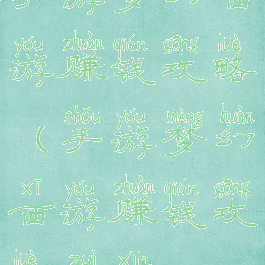 yóu zhuàn qián gōng lüè
游 赚 钱 攻 略
shǒu yóu mèng huàn
( 手 游 梦 幻
xī yóu zhuàn qián gōng
西 游 赚 钱 攻
lüè zuì xīn